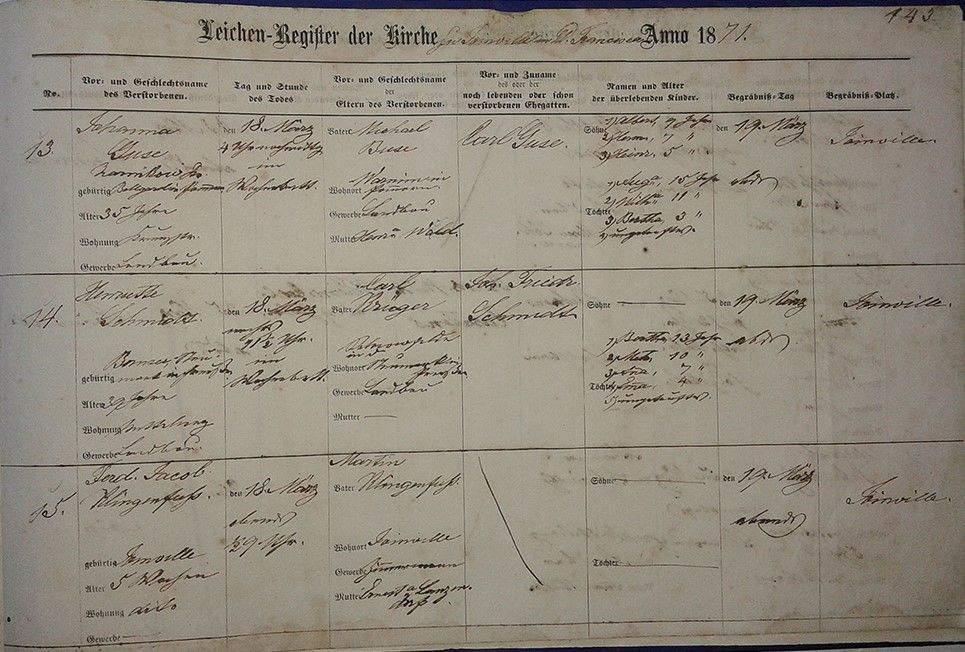 145.
Leichen-Register der Kirche zu Joinville in S. Francisco Anno 1871.
No.
Vor- und Geschlechtsname
des Verstorbenen.
Tag und Stunde
des Todes
Vor- und Geschlechtsname
der
Eltern des Verstorbenen.
Vor- und Zuname
des oder der
noch lebenden oder schon
verstorbenen Ehegatten.
Namen und Alter
der überlebenden Kinder.
Begräbniß-Tag
Begräbniß-Platz.
13.
Johanna
Guse
gebürtig
Alter 35 Jahre
Wohnung
Gewerbe Landbau.
den 18. März
4 Uhr nachmittg
im
Wochenbett.
Vater Michael
Buse
Wohnort
Pommern.
Gewerbe Landbau
Mutter
Carl Guse.
Söhne 1) Albert, 9 Jahr
2) Herm, 7 "
3) Heinr. 5 "
1) Augu 15 Jahr
2) 11 "
Töchter 3) Bertha, 3 "
4) ungetauftes.
den 19. März
abds
Joinville.
14.
Henriette
Schmidt
gebürtig
Alter 39 Jahre
Wohnung
Gewerbe Landbau.
den 18. März
nachts
Uhr.
im
Wochenbett.
Carl
Vater Krüger
Wohnort
Gewerbe Landbau
Mutter —
Joh. Friedr
Schmidt
Söhne —
1) Bertha 13 Jahr
2) 10 "
3) 7 "
Töchter 4 "
5) ungetauftes
den 19. März
abds
Joinville.
15.
Ferd. Jacob
Klingenfuß.
gebürtig Joinville
Alter 5 Wochen
Wohnung dito
Gewerbe —
den 18. März
abends
9 Uhr.
Martin
Vater Klingenfuß.
Wohnort Joinville
Gewerbe Zimmermann
Mutter
Söhne —
Töchter —
den 19. März
abends
Joinville.